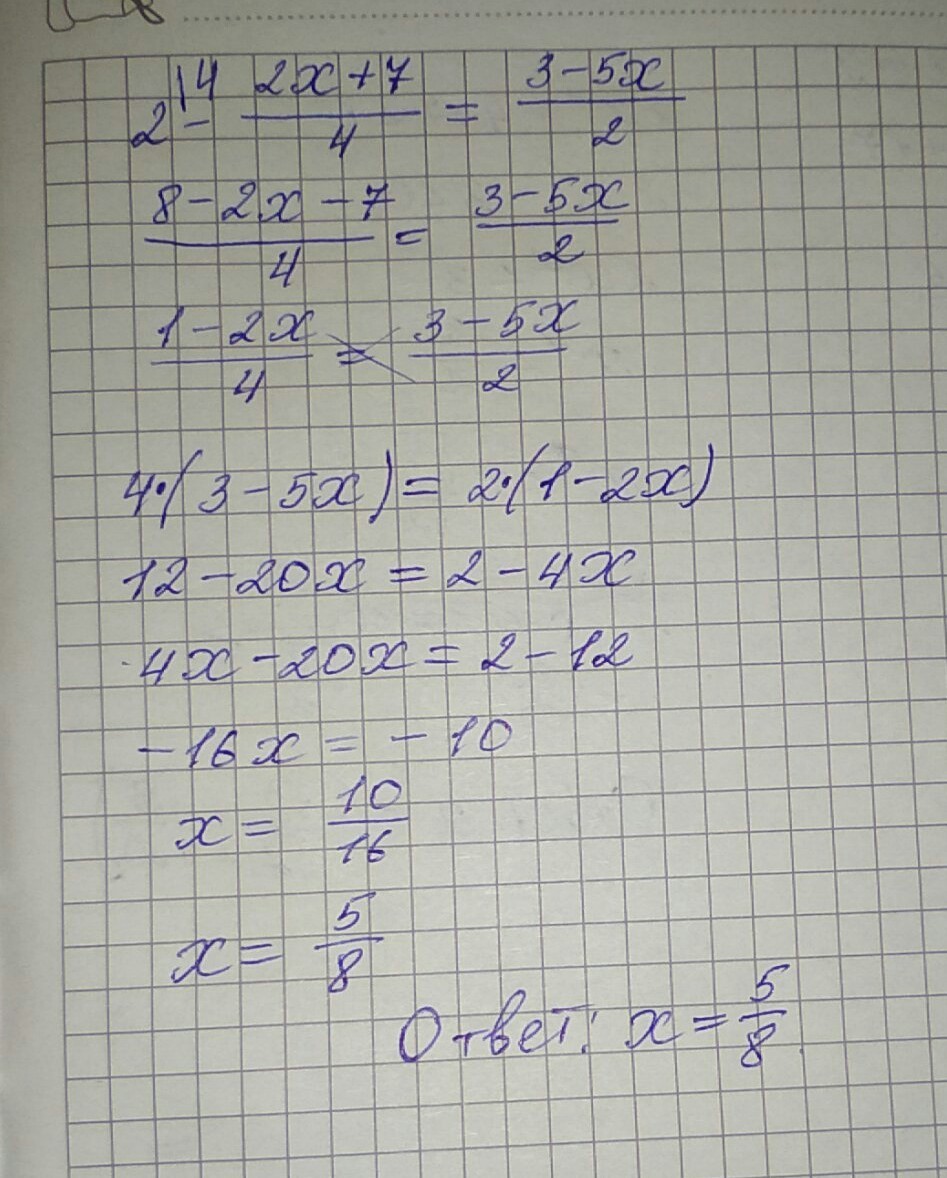 2^{\4} - \frac{2x+7}{4} = \frac{3-5x}{2}
\frac{8-2x-7}{4} = \frac{3-5x}{2}
\frac{1-2x}{4} = \frac{3-5x}{2}
4·(3-5x) = 2·(1-2x)
12-20x = 2-4x
4x-20x = 2-12
-16x = -10
x = \frac{10}{16}
x = \frac{5}{8}
Ответ: x = \frac{5}{8}.